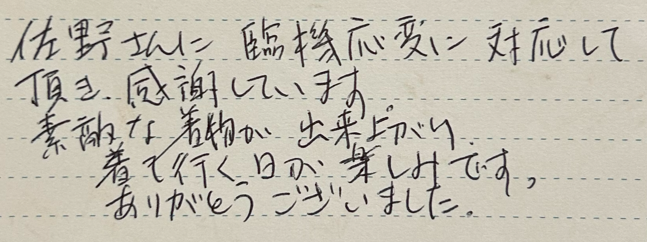 佐野さんに 臨機応変に 対応して
頂き、感謝しています
素敵な着物が 出来上がり、
着て行く日が 楽しみです。
ありがとうございました。